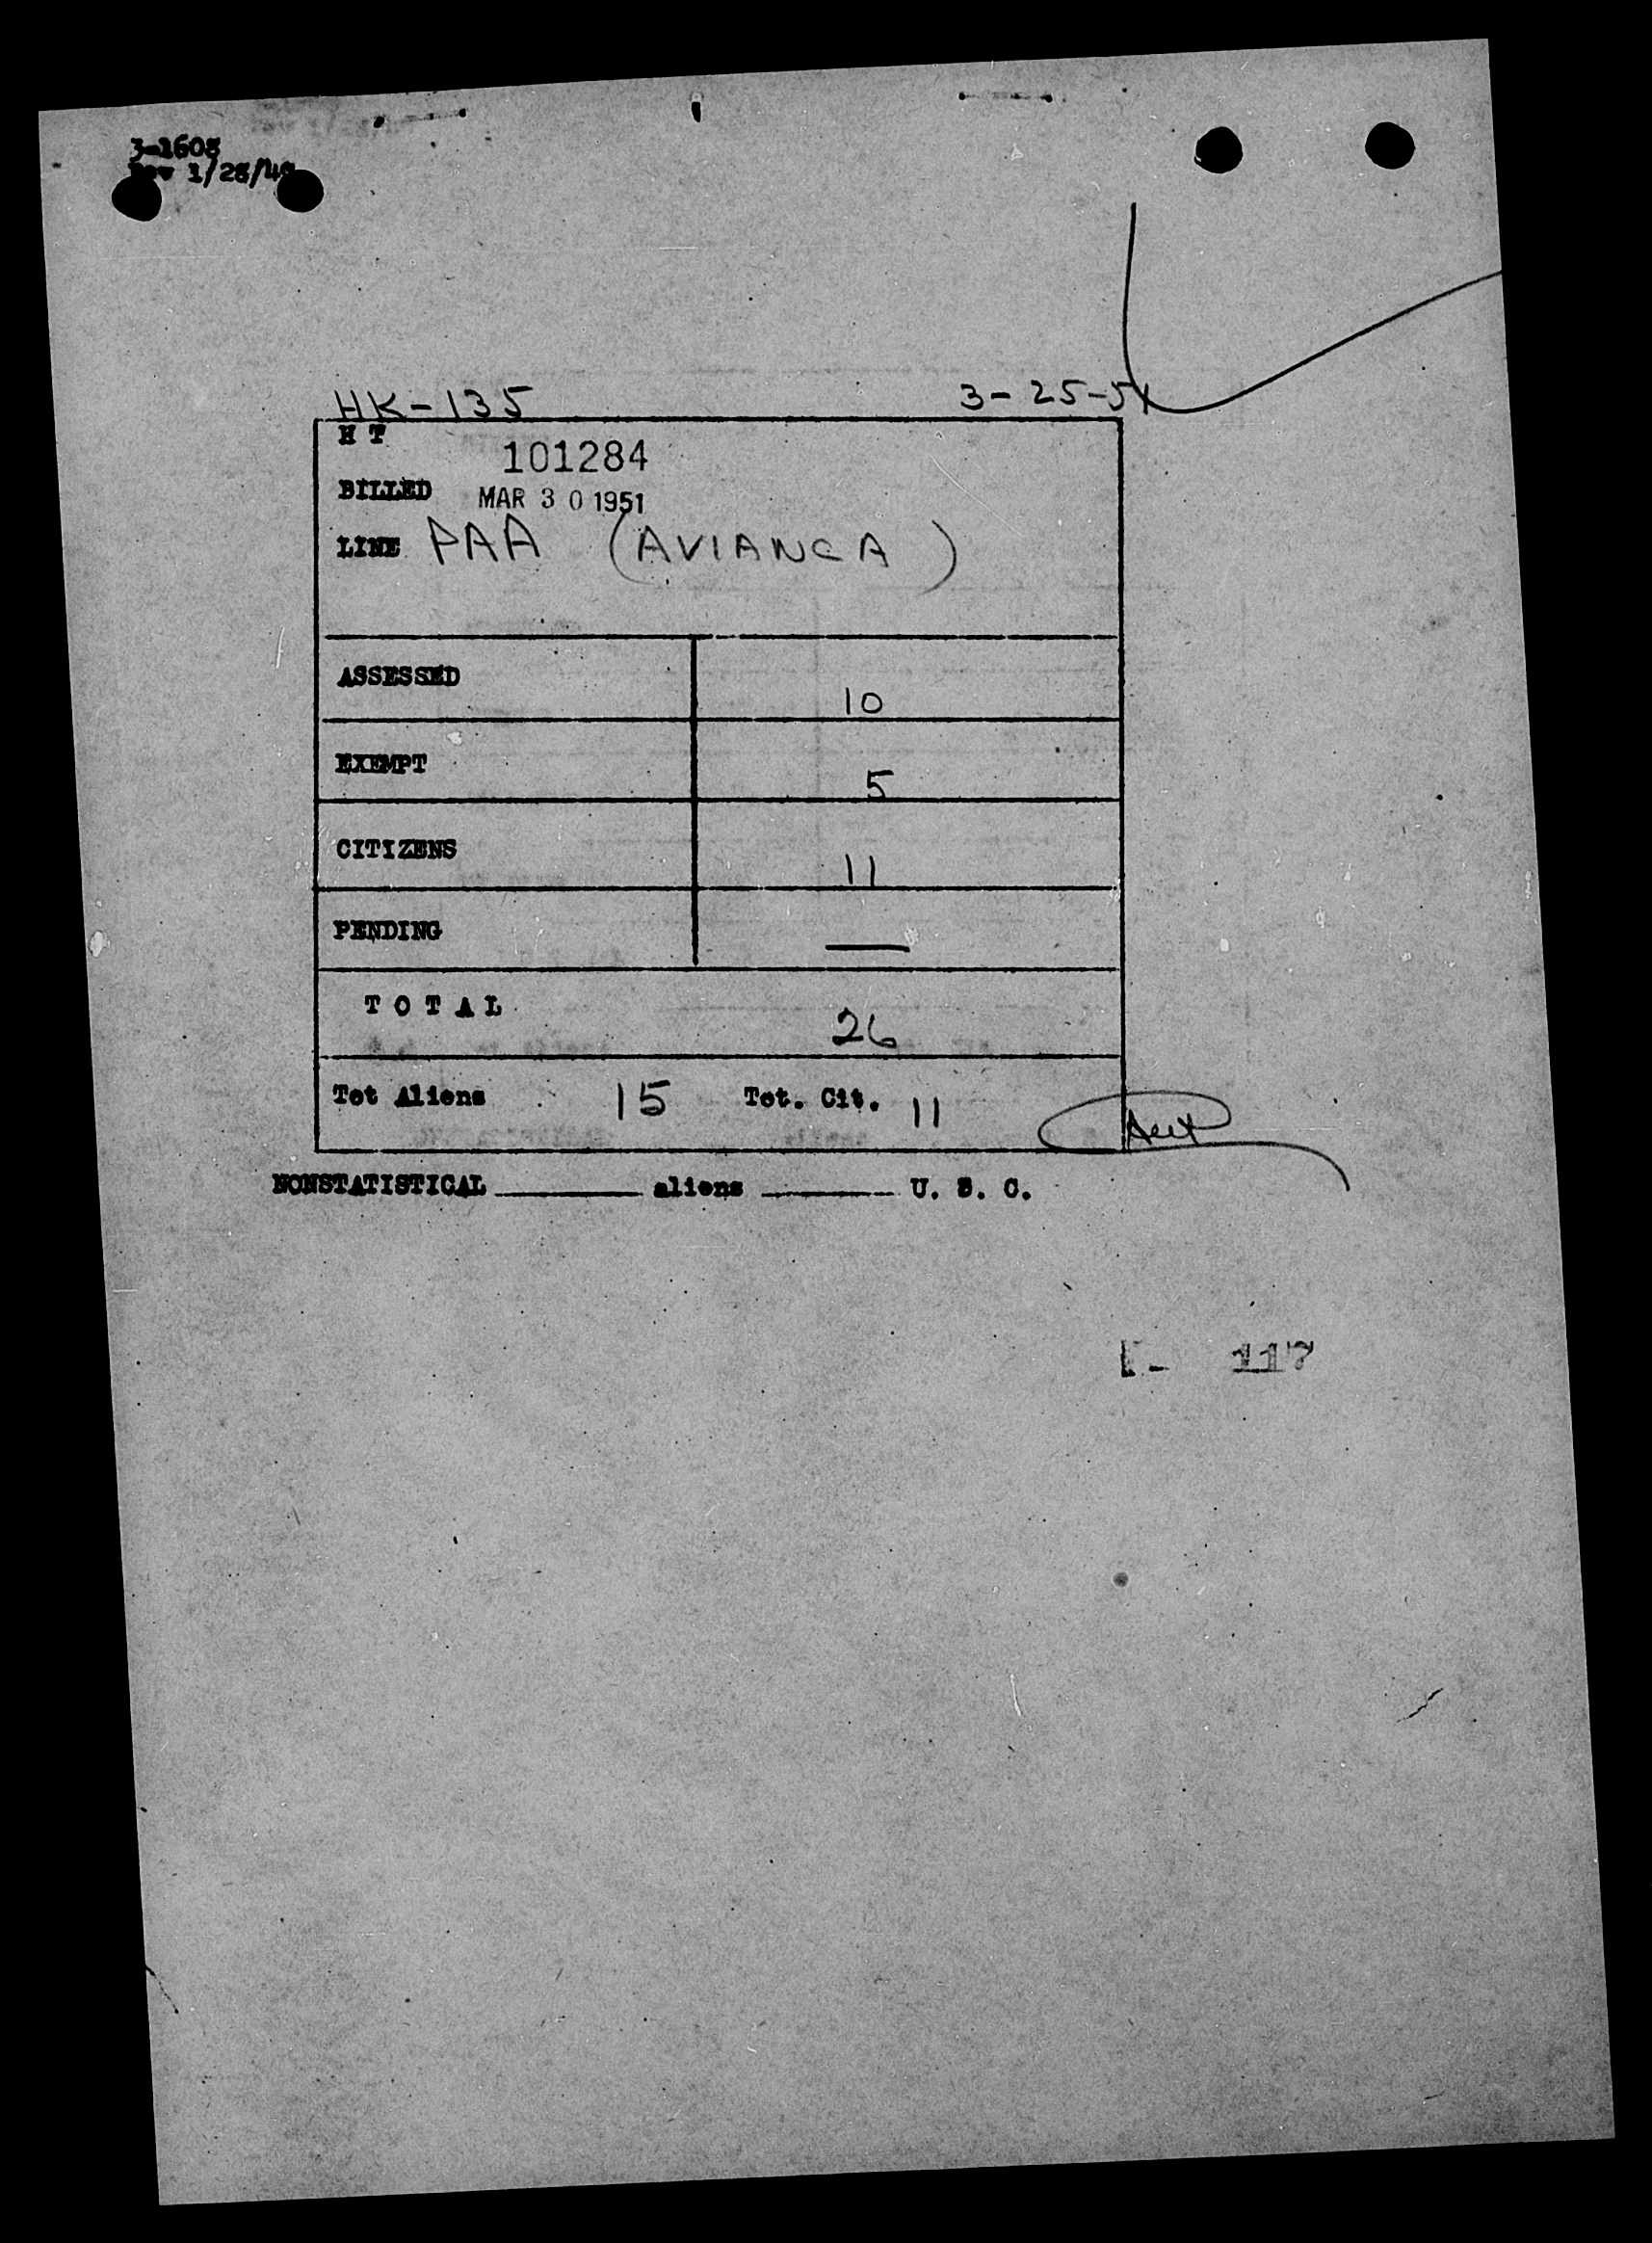 3-1608
Rev 1/28/49
HK-135 3-25-51
H T 101284
BILLED MAR 30 1951
LINE PAA (AVIANCA)
ASSESSED 10
EXEMPT 5
CITIZENS 11
PENDING —
TOTAL 26
Tot Aliens 15 Tot. Cit. 11
NONSTATISTICAL ______ aliens ______ U. S. C.
117